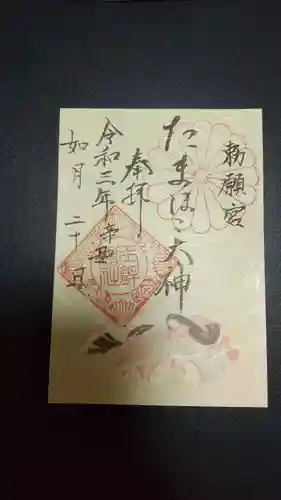 勅願宮
たまほこ大神
奉拝
令和三年辛丑
如月 二十日